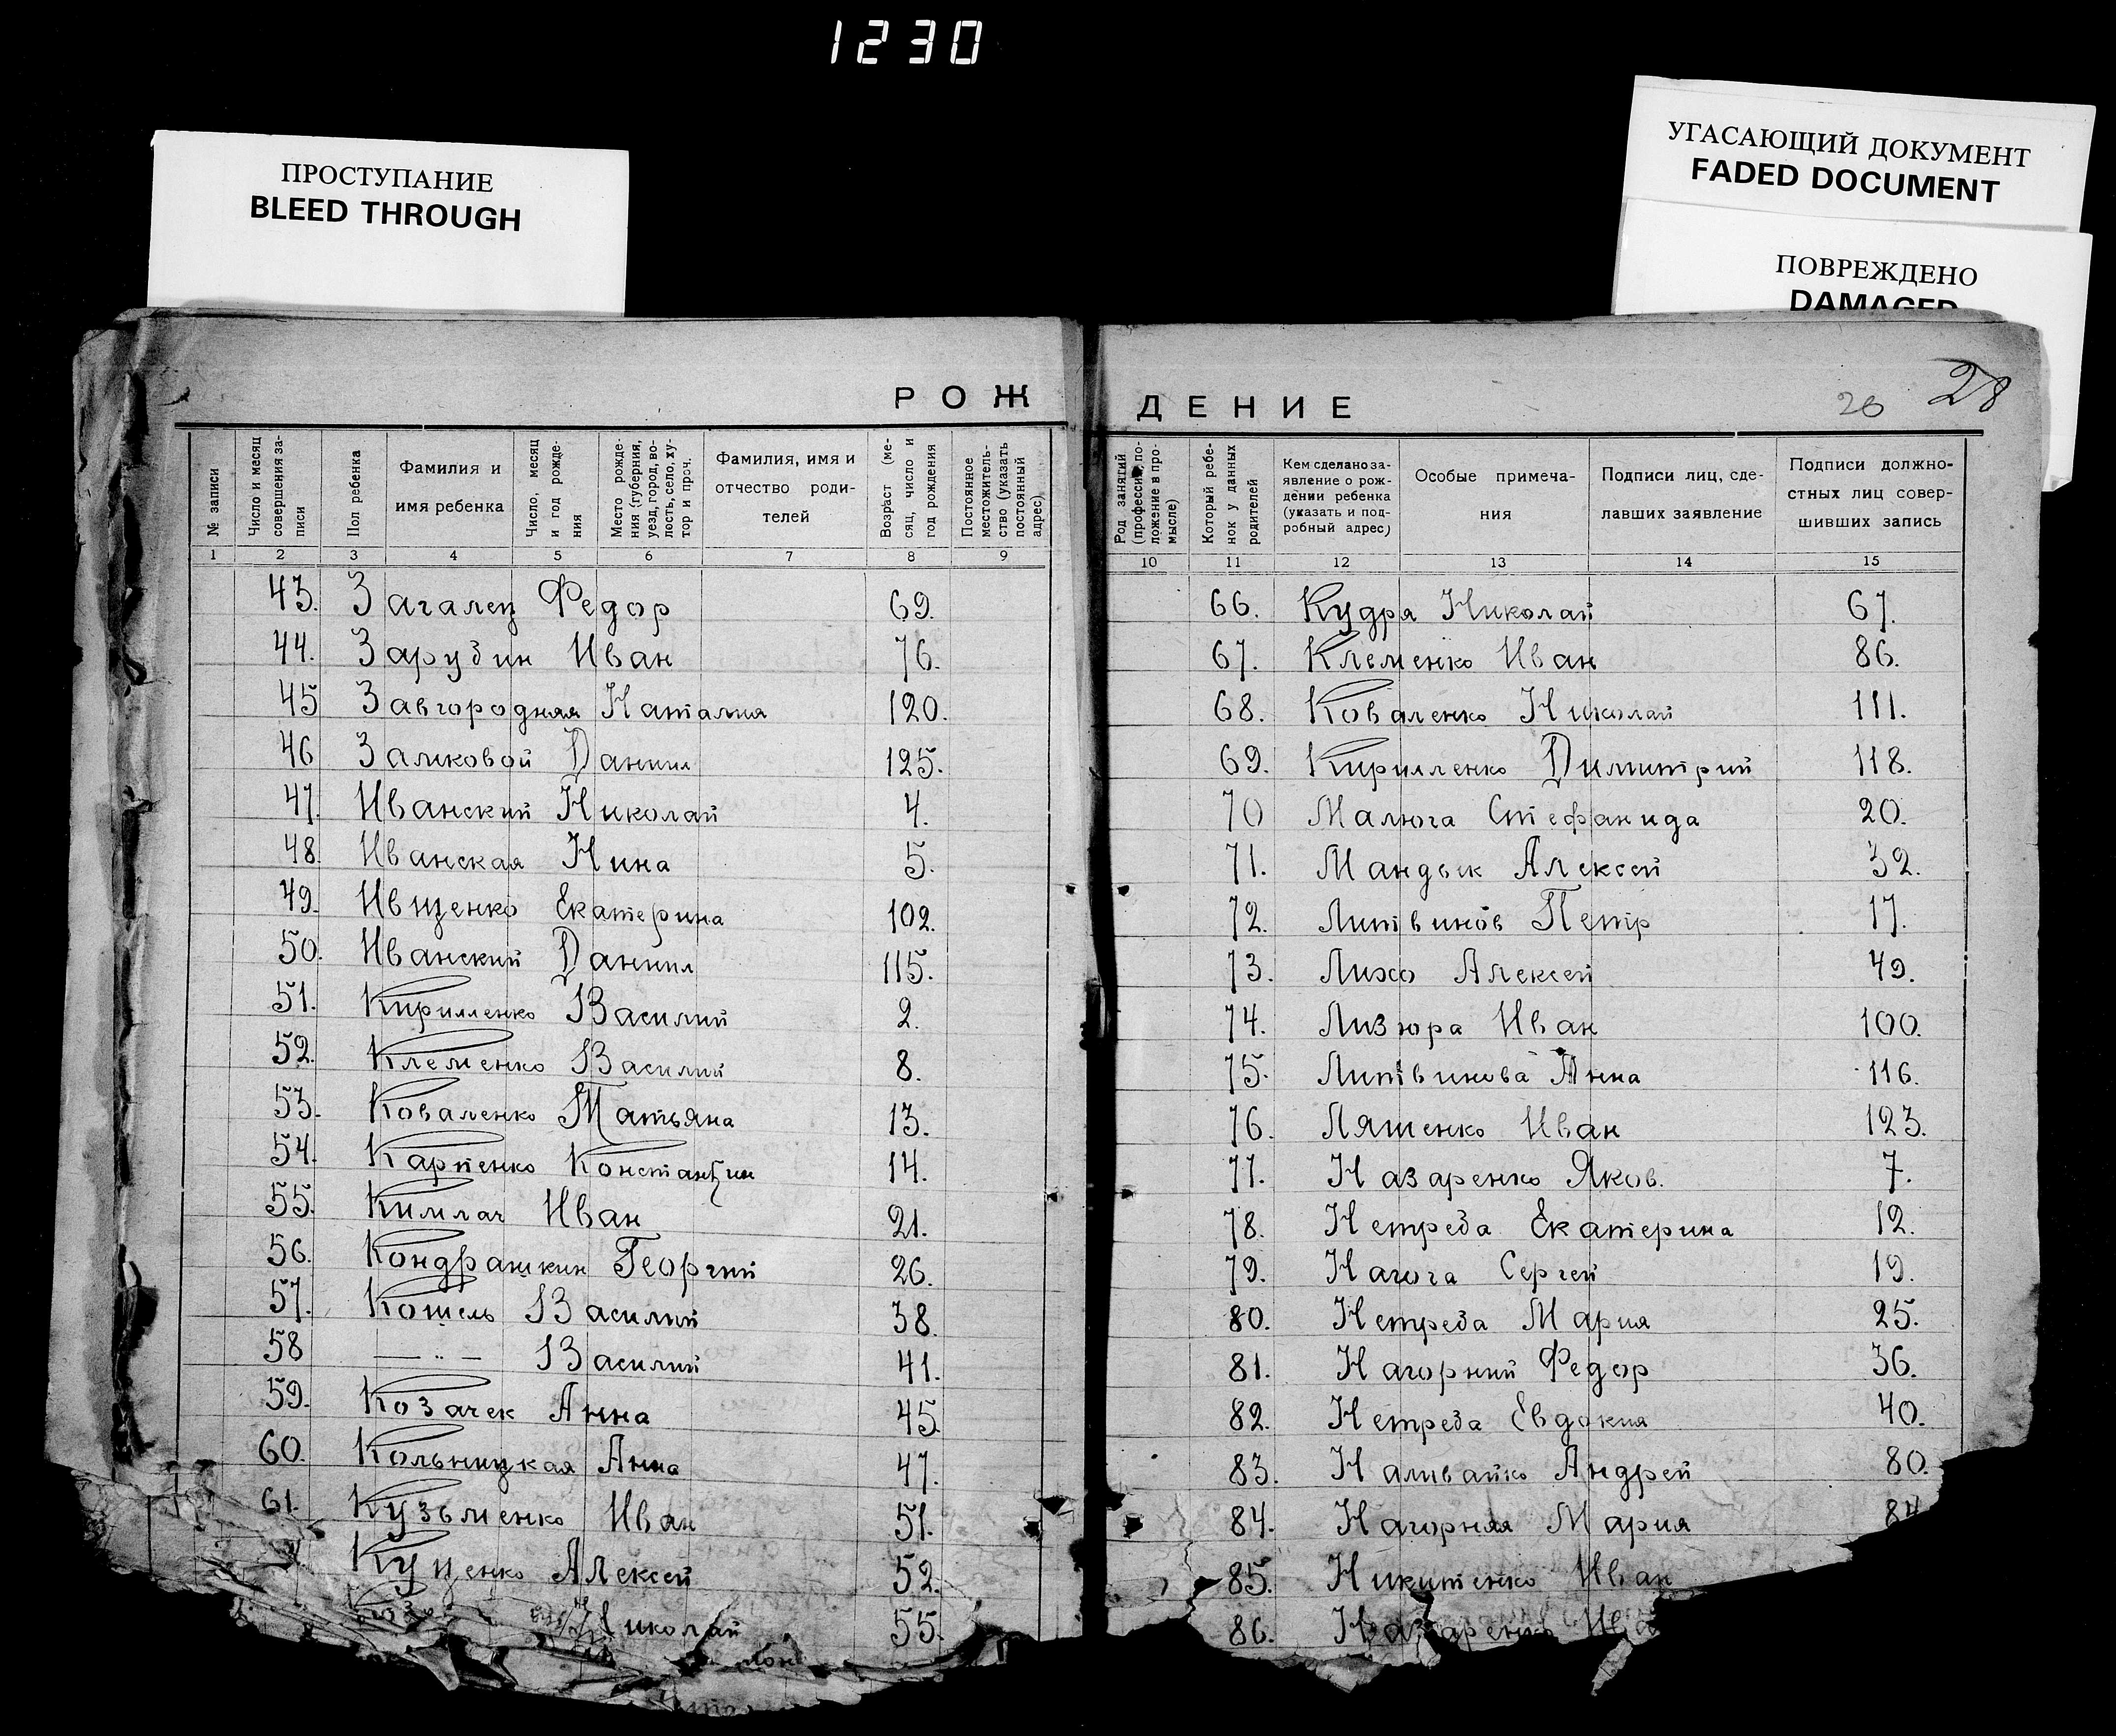 1230
ПРОСТУПАНИЕ
BLEED THROUGH
УГАСАЮЩИЙ ДОКУМЕНТ
FADED DOCUMENT
ПОВРЕЖДЕНО
DAMAGED
РОЖ
№ записи
Число и месяц совершения записи
Пол ребенка
Фамилия и
имя ребенка
Число, месяц и год рождения
Место рождения (губерния, уезд, город, волость, село, хутор и проч.
Фамилия, имя и
отчество роди-
телей
Возраст (месяц, число и год рождения
Постоянное местожительство (указать постоянный адрес)
1 2 3 4 5 6 7 8 9
43. Загалец Федор 69.
44. Зарубин Иван 76.
45 Завгородняя Наталия 120.
46 Замковой Даниил 125.
47. Иванский Николай 4.
48. Иванская Нина 5.
49. Ивщенко Екатерина 102.
50. Иванский Даниил 115.
51. Кириленко Василий 2.
52. Клеменко Василий 8.
53. Коваленко Татьяна 13.
54. Карпенко Константин 14.
55. Кимлач Иван 21.
56. Кондрашкин Георгий 26.
57. Кошель Василий 38.
58 — " — Василий 41.
59. Козачек Анна 45
60. Кольницкая Анна 47.
61. Кузьменко Иван 51.
Куценко Алексей 52.
Николай 55.
ДЕНИЕ
26 28
Род занятий (профессия, положение в промысле)
Который ребенок у данных родителей
Кем сделано за-
явление о рож-
дении ребенка
(указать и под-
робный адрес)
Особые примеча-
ния
Подписи лиц, сде-
лавших заявление
Подписи должно-
стных лиц совер-
шивших запись
10 11 12 13 14 15
66. Кудря Николай 67.
67. Клеменко Иван 86.
68. Коваленко Николай 111.
69. Кириленко Димитрий 118.
70 Малюга Стефанида 20.
71. Мандык Алексей 32.
72. Литвинов Петр 17.
73. Лихо Алексей 49.
74. Лизюра Иван 100.
75. Литвинова Анна 116.
76. Ляшенко Иван 123.
77. Назаренко Яков. 7.
78. Нетреба Екатерина 12.
79. Нагога Сергей 19.
80. Нетреба Мария 25.
81. Нагорний Федор 36.
82. Нетреба Евдокия 40.
83. Наливайко Андрей 80.
84. Нагорняя Мария 84
85. Никитенко Иван
86. Назаренко